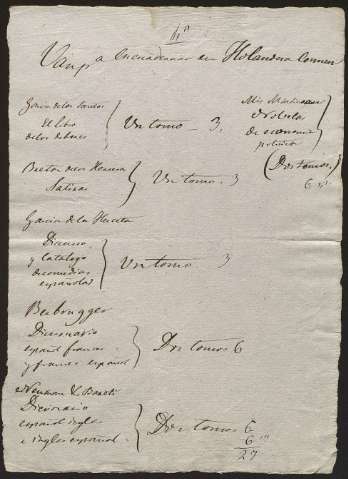 Van pª encuadernar en Holandesa comun
Garcia de los Santos
El libro
de los deberes
Un tomo - 3,
Mis Martineau
Novelas
de economia
politica
(Dos tomos,)
6
Breton de los Herreros
Satiras
Un tomo - 3
Garcia de la Huerta
Discurso
y Catalogo
de comedias
españolas
Un tomo 3
Berbrugger
Diccionario
español frances
y frances español
Dos tomos 6
Neuman & Baretti
Diccionario
español ingles
e ingles español.
Dos tomos 6
6
27